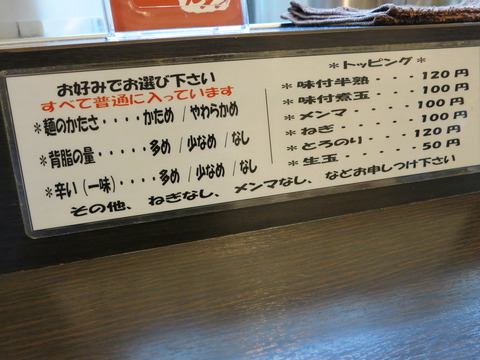 お好みでお選び下さい
すべて普通に入っています
＊麺のかたさ・・・・かため / やわらかめ
＊背脂の量・・・・・多め / 少なめ / なし
＊辛い（一味）・・・・多め / 少なめ / なし
その他、ねぎなし、メンマなし、などお申しつけ下さい
＊トッピング＊
＊味付半熟・・・・120円
＊味付煮玉・・・・100円
＊メンマ・・・・・100円
＊ねぎ・・・・・・100円
＊とろのり・・・・120円
＊生玉・・・・・・50円